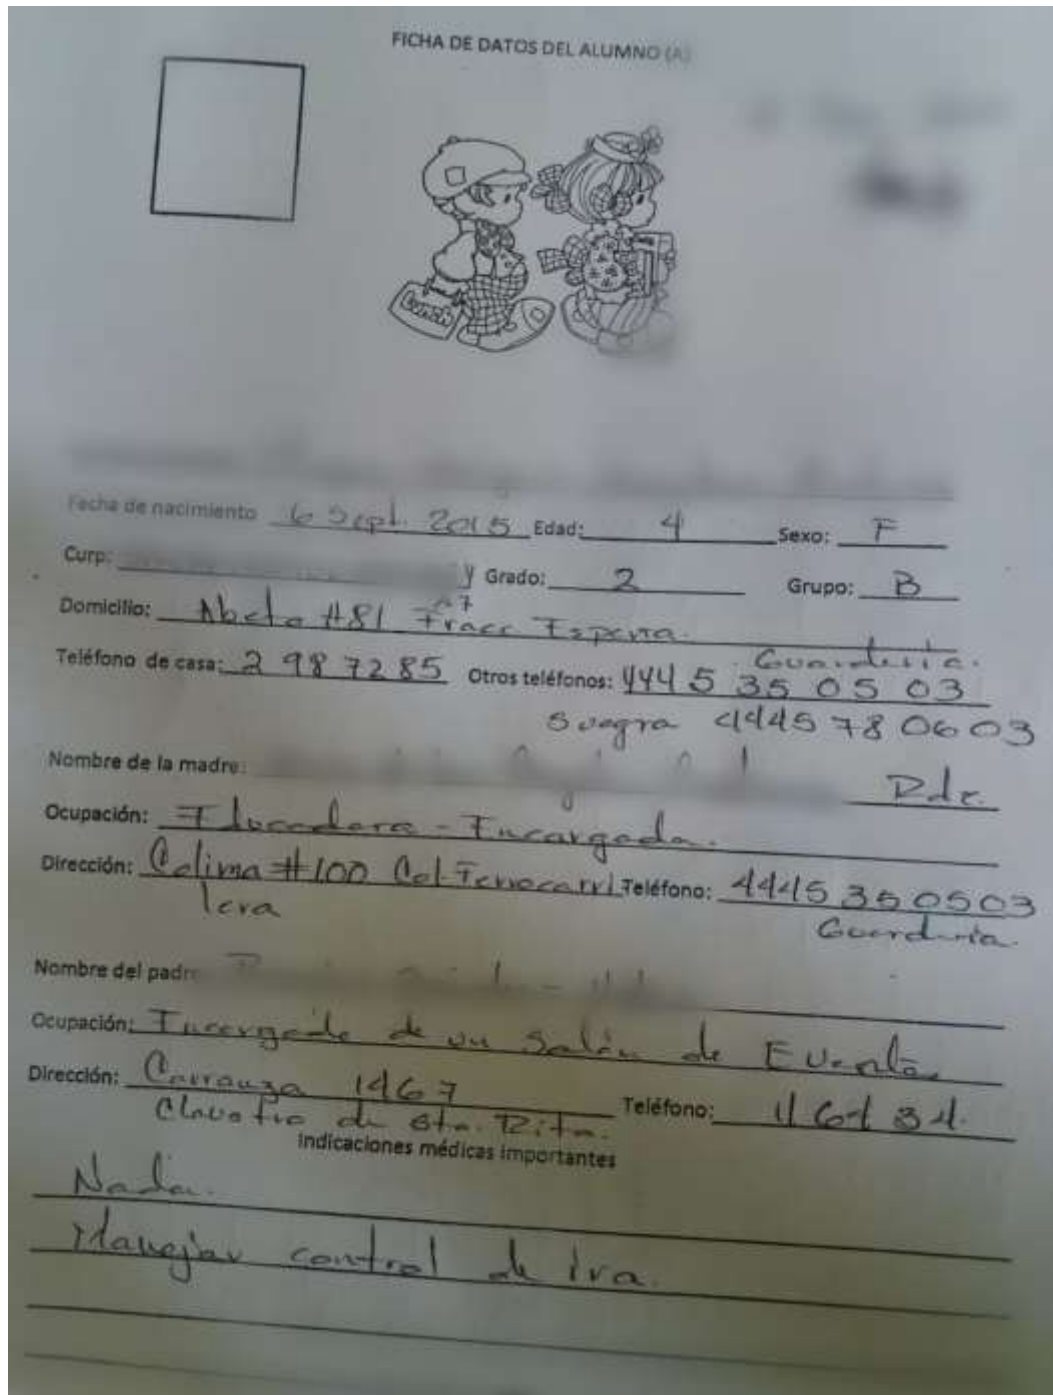 FICHA DE DATOS DEL ALUMNO (A)
Lunch
Fecha de nacimiento 6 Sept. 2015 Edad: 4 Sexo: F
Curp: Grado: 2 Grupo: B
Domicilio: Abeto #81 Fracc
Guardería.
Teléfono de casa: 2 98 72 85 Otros teléfonos: 444 5 35 05 03
Suegra 4445780603
Nombre de la madre:
Ocupación: Educadora - Encargada.
Dirección: Colima #100 Col Ferrocarri Teléfono: 4445350503
lera Guardería
Nombre del padre
Ocupación: Encargado de un Salón de Eventos
Dirección: Carranza 1467 Teléfono:
Claustro de Sta. Rita.
Indicaciones médicas importantes
Nada.
Manejar control de ira.